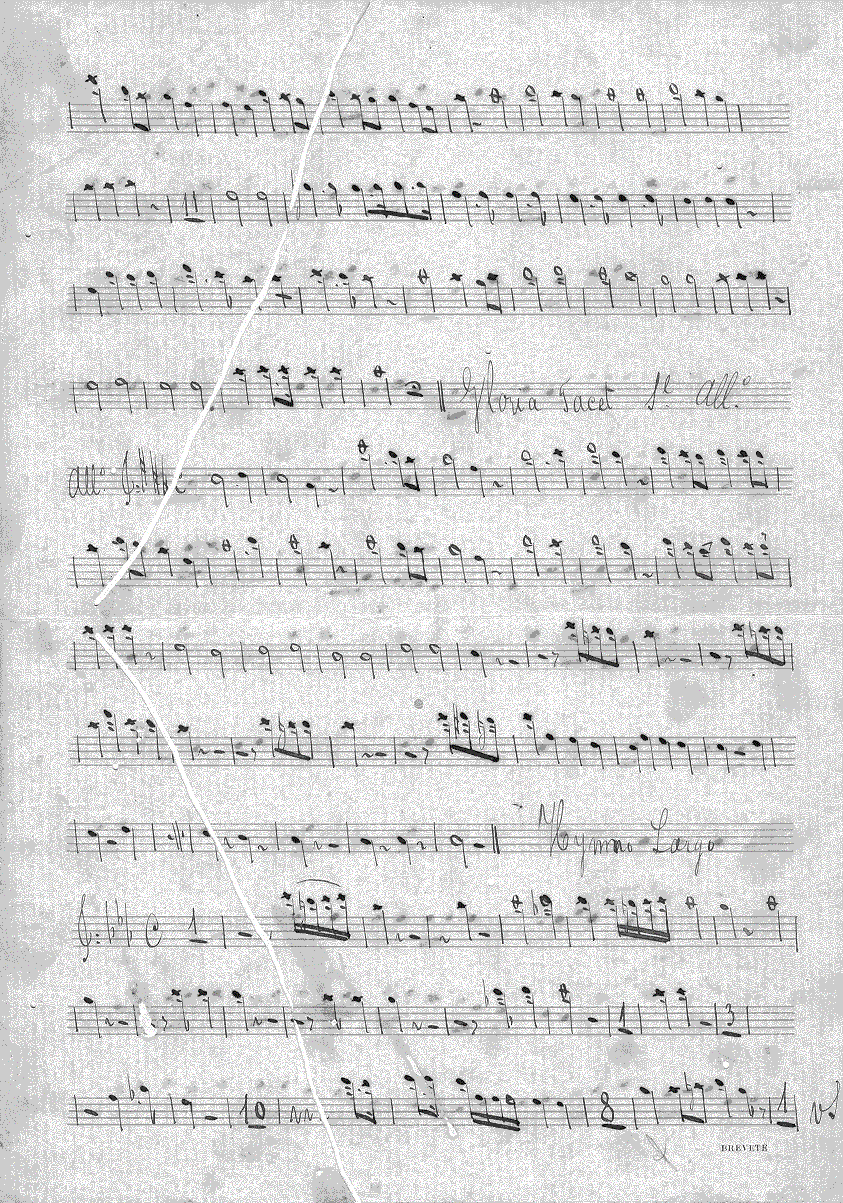 11
Gloria Tacet 1º All.º
All.º
Hymno Largo
1
1 3
10 8 1 V.S
BREVETÉ